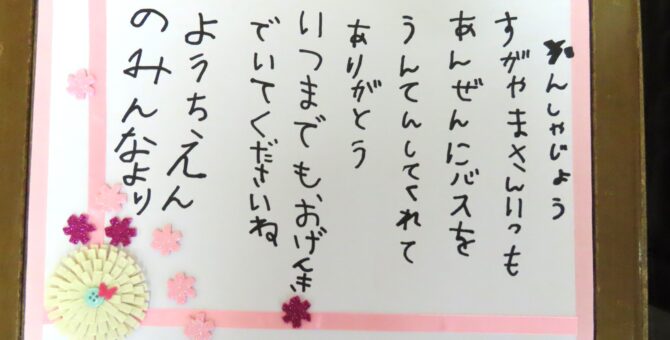 かんしゃじょう
すがやまさんいつも
あんぜんにバスを
うんてんしてくれて
ありがとう
いつまでも、おげんき
でいてくださいね
ようちえん
のみんなより